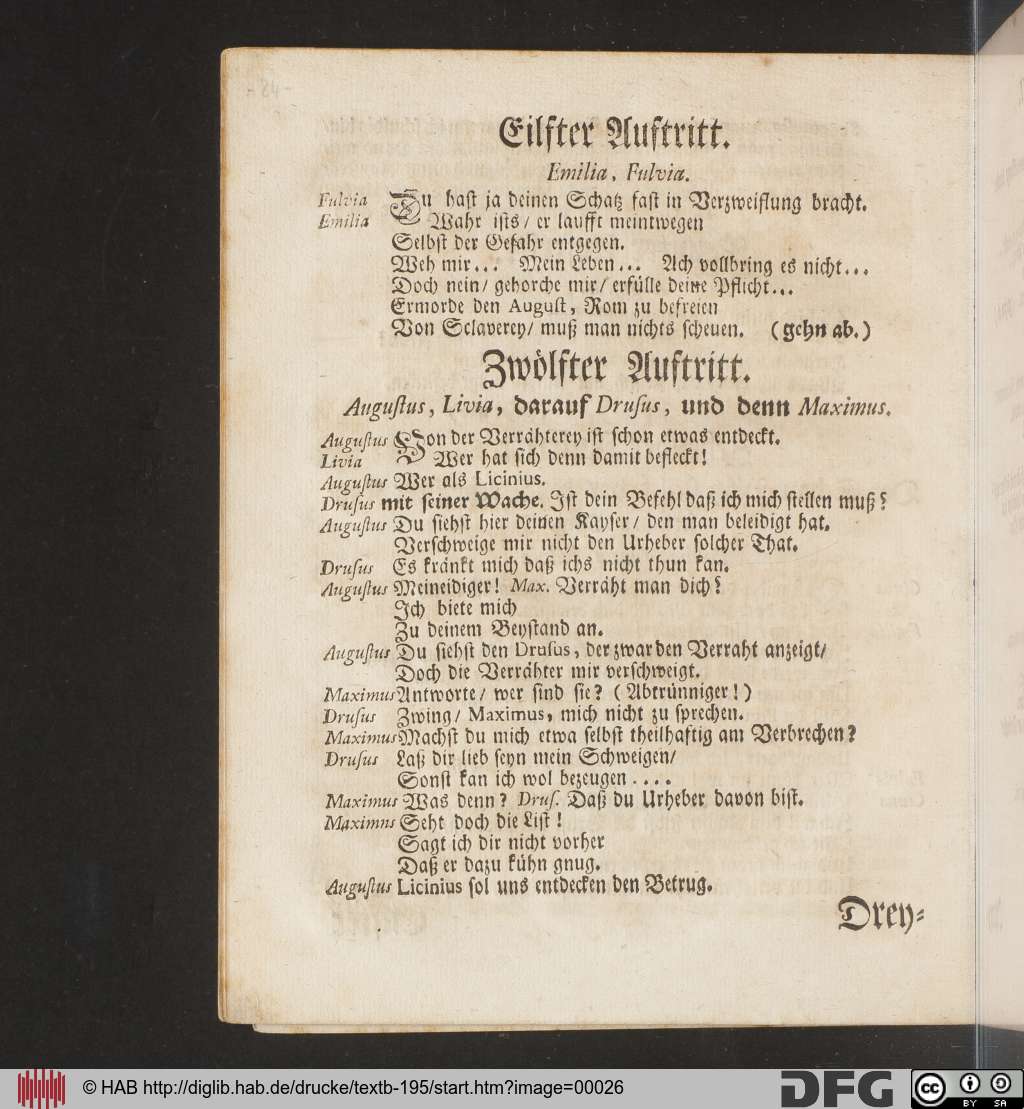 Eilfter Auftritt.
Emilia, Fulvia.
Fulvia Du hast ja deinen Schatz fast in Verzweiflung bracht.
Emilia Wahr ists/ er laufft meintwegen
Selbst der Gefahr entgegen.
Weh mir... Mein Leben... Ach vollbring es nicht...
Doch nein/ gehorche mir/ erfülle deine Pflicht...
Ermorde den August, Rom zu befreien
Von Sclaverey/ muß man nichts scheuen. (gehn ab.)
Zwölfter Auftritt.
Augustus, Livia, darauf Drusus, und denn Maximus.
Augustus Von der Verrähterey ist schon etwas entdeckt.
Livia Wer hat sich denn damit befleckt!
Augustus Wer als Licinius.
Drusus mit seiner Wache. Ist dein Befehl daß ich mich stellen muß?
Augustus Du siehst hier deinen Kayser/ den man beleidigt hat.
Verschweige mir nicht den Urheber solcher That.
Drusus Es kränkt mich daß ichs nicht thun kan.
Augustus Meineidiger! Max. Verräht man dich?
Ich biete mich
Zu deinem Beystand an.
Augustus Du siehst den Drusus, der zwar den Verraht anzeigt/
Doch die Verrähter mir verschweigt.
Maximus Antworte/ wer sind sie? (Abtrünniger!)
Drusus Zwing/ Maximus, mich nicht zu sprechen.
Maximus Machst du mich etwa selbst theilhaftig am Verbrechen?
Drusus Laß dir lieb seyn mein Schweigen/
Sonst kan ich wol bezeugen....
Maximus Was denn? Drus. Daß du Urheber davon bist.
Maximns Seht doch die List!
Sagt ich dir nicht vorher
Daß er dazu kühn gnug.
Augustus Licinius sol uns entdecken den Betrug.
Drey-
© HAB http://diglib.hab.de/drucke/textb-195/start.htm?image=00026
DFG
cc BY SA